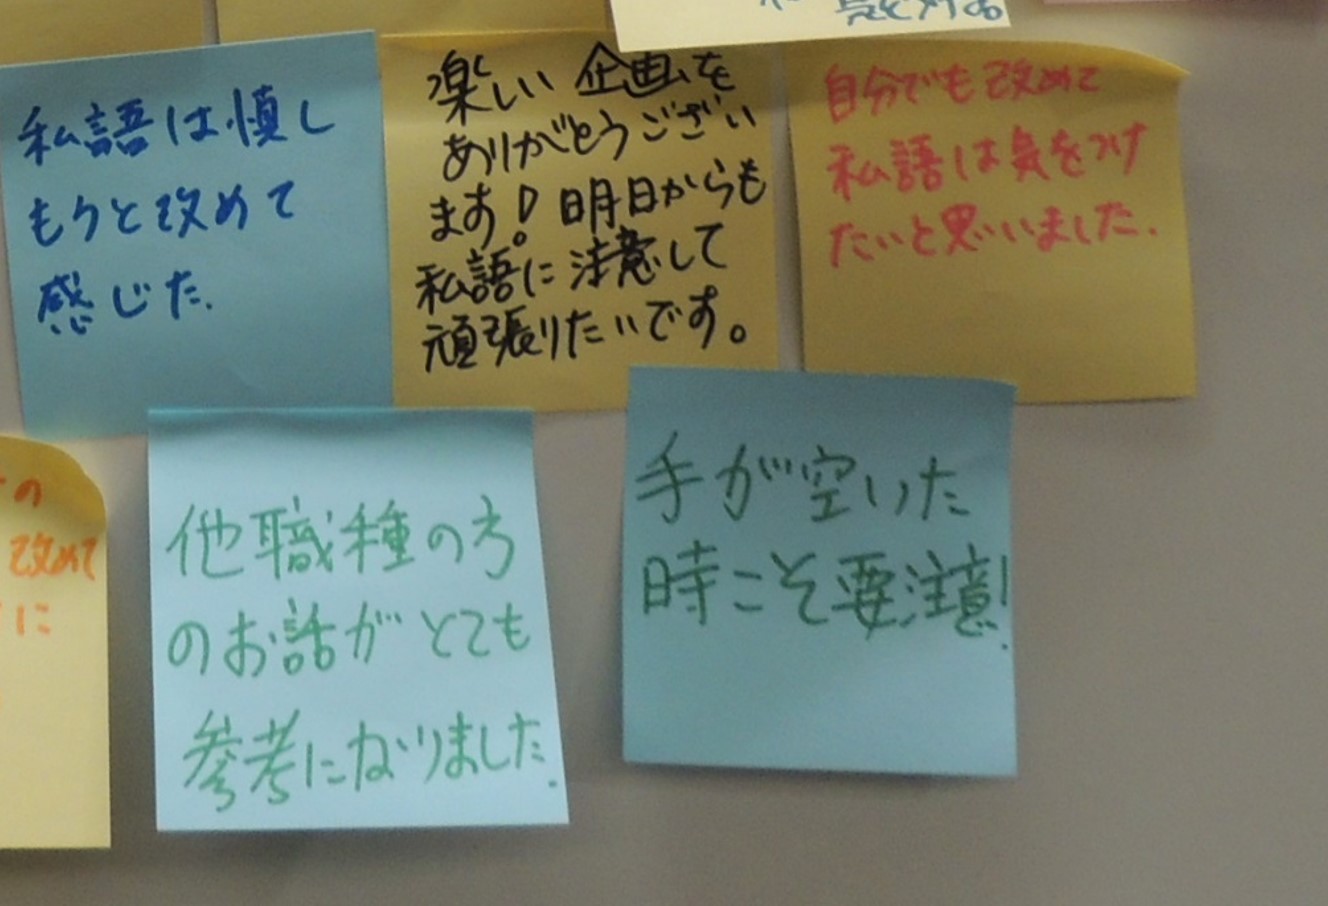 気を付る
私語は慎し
もうと改めて
感じた.
楽しい企画を
ありがとうござい
ます! 明日からも
私語に注意して
頑張りたいです。
自分でも改めて
私語は気をつけ
たいと思いました.
の
改めて
に
他職種の方
のお話がとても
参考になりました.
手が空いた
時こそ要注意!